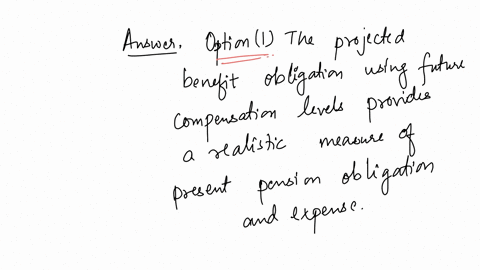 Answer. Option (1) The projected
benefit obligation using future
compensation levels provides
a realistic measure of
present pension obligation
and expense.